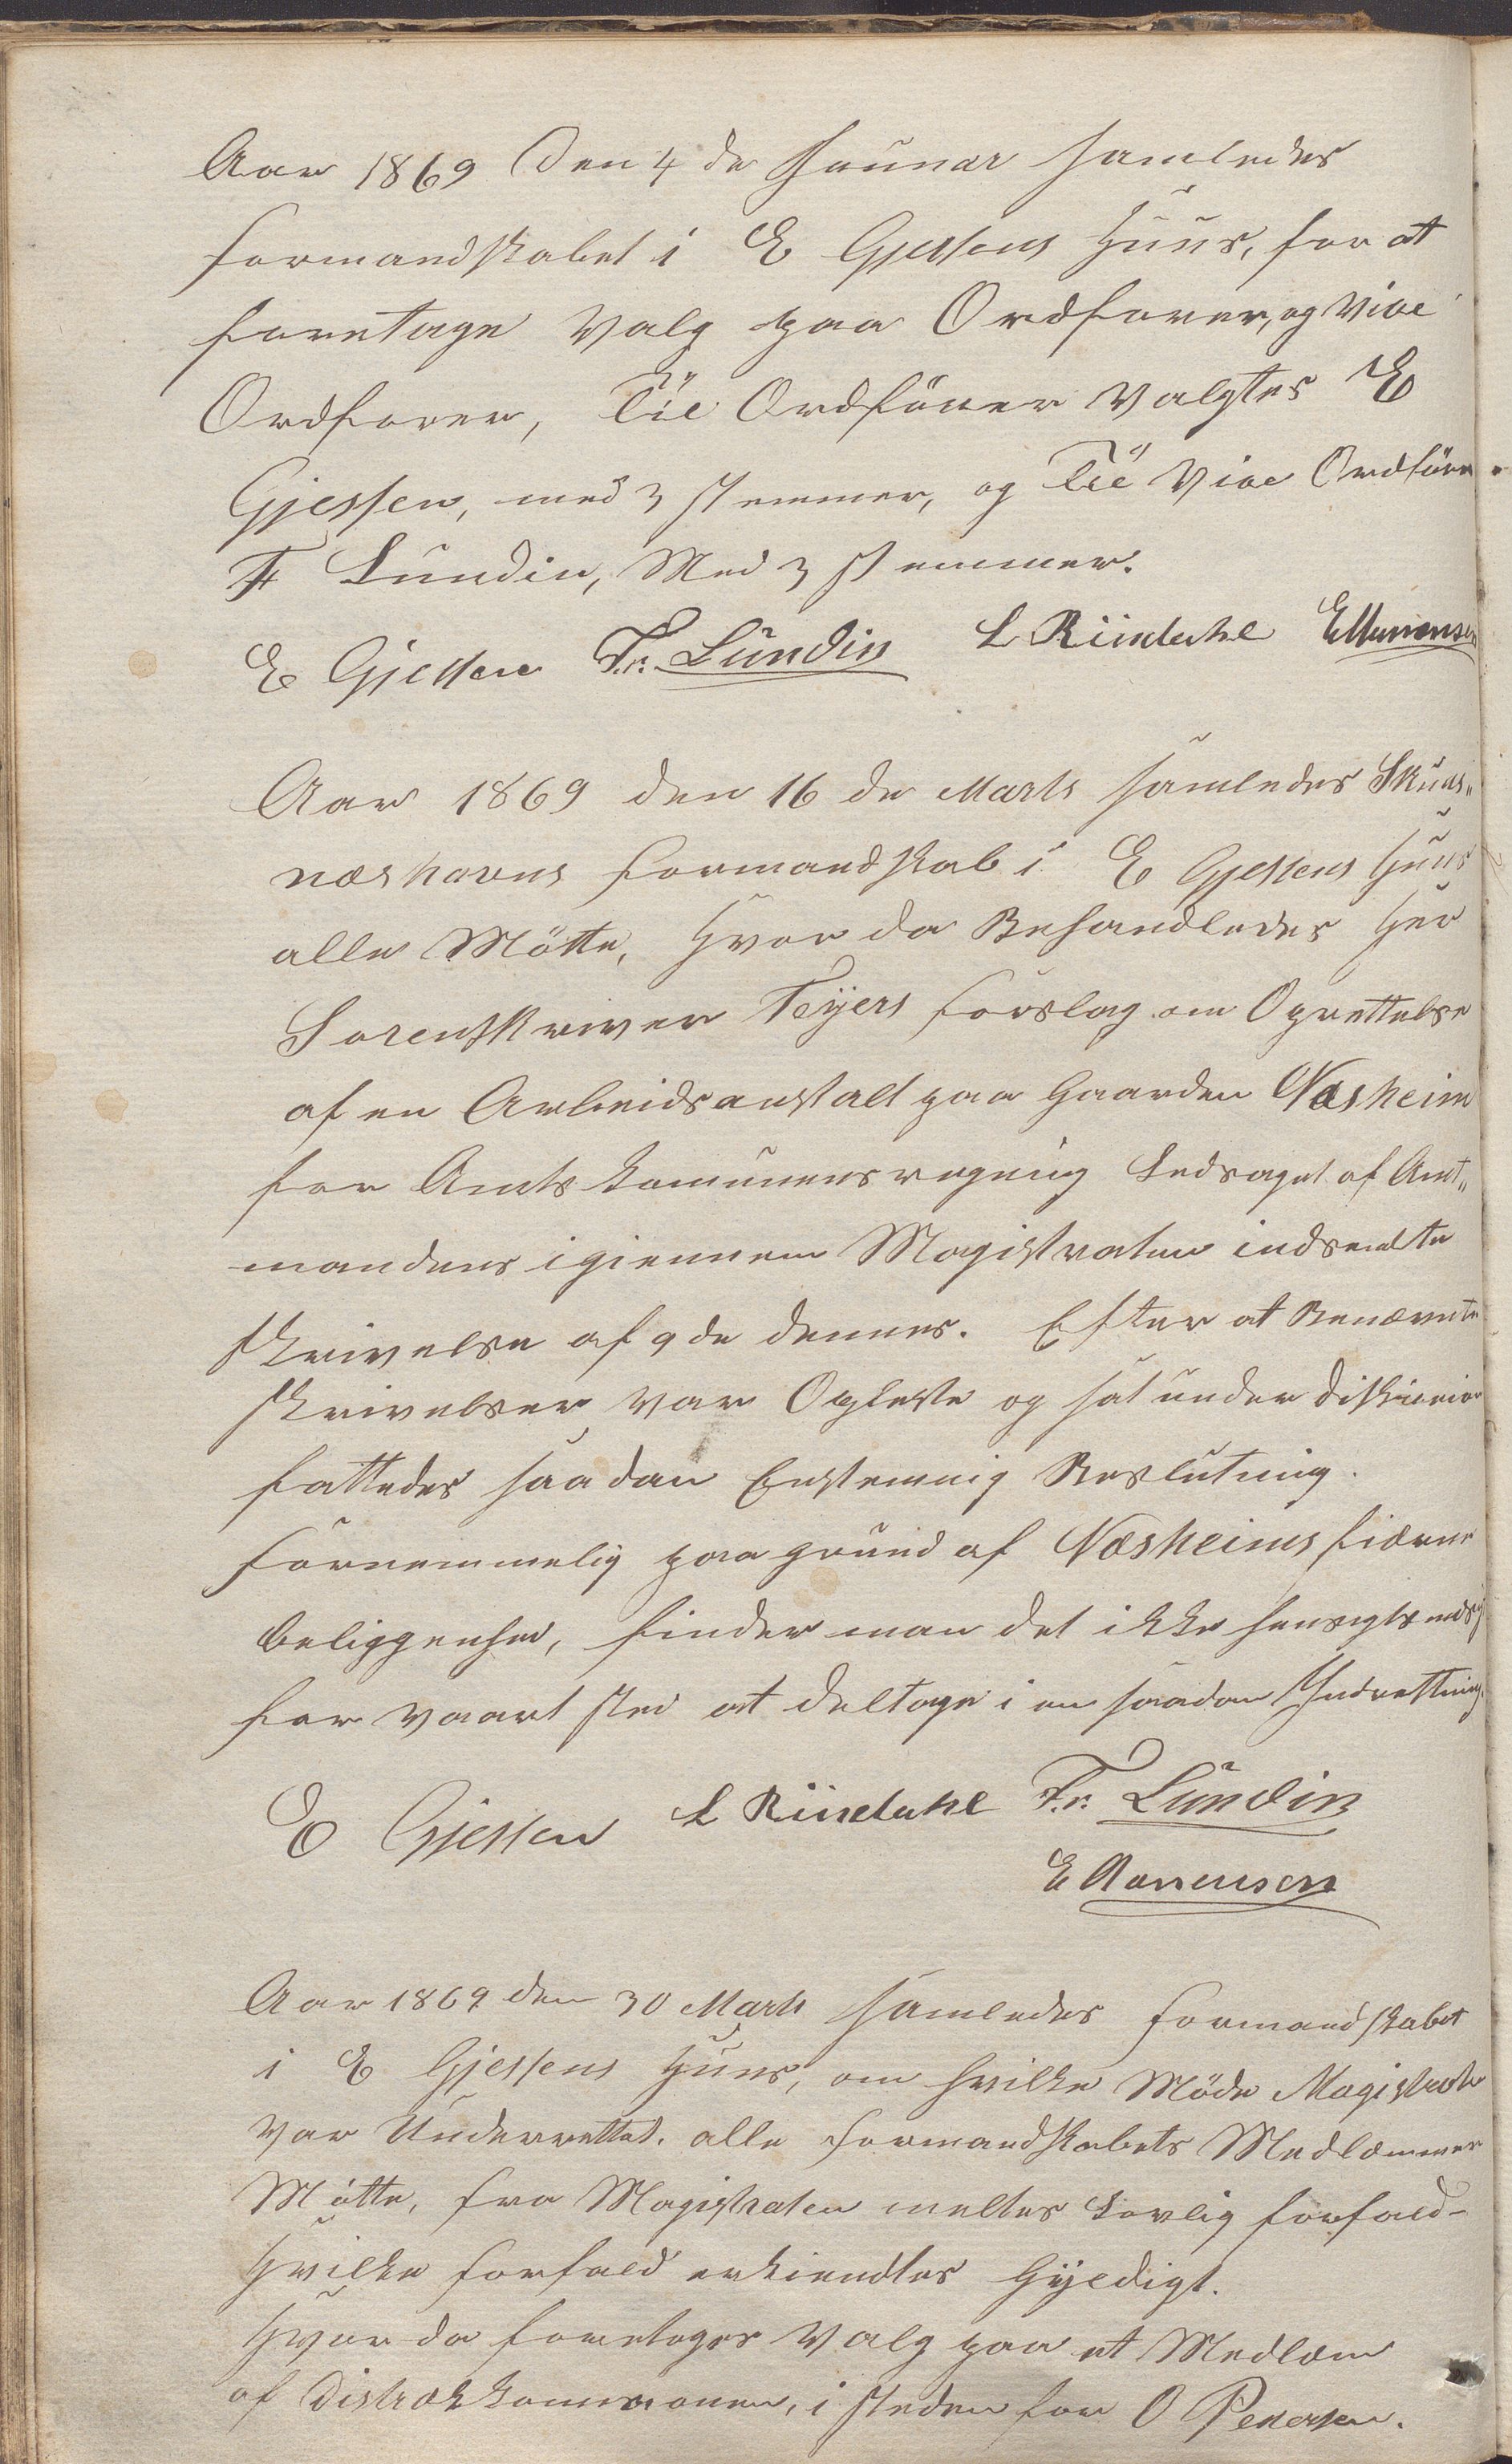 Aar 1869 den 4 de Januar samledes
formandskabet i E Gjessens Huus, for at
foretage Valg paa Ordforer, og Vice
Ordforer, Til Ordförer Valgtes E
Gjessen, med 3 stemmer, og Til Vice Ordförer
Fr Lundin, Med 3 stemmer.
E Gjessen Fr. Lundin L Rindahl
Aar 1869 den 16 de Marts samledes Skuds„
næshavns formandskab i E Gjessens Huus
alle Mötte, Hvor da Behandledes Her
Sorenskriver Feyers forslag om Oprettelse
af en Arbeidsanstalt paa Gaarden Næsheim
for Amtskomunens regning Ledsaget af Amt„
mandens igiennem Magistraten indsendte
skrivelse af 9 de dennes. Efter at Benævnte
skrivelser var Opleste og sat under diskusion
fattedes saadan Enstemmig Beslutning.
fornemmelig paa grund af Næsheims fiærne
beliggenhed, finder man det ikke hensigtsmæsig
for vaart sted at deltage i en saadan Indretning.
E Gjessen L Rindahl Fr. Lundin
E Aanensen
Aar 1869 den 30 Marts samledes formandskabet
i E Gjessens Huus, om hvilke Möde Magistraten
var Underrettet. alle formandskabets Medlemmer
Mötte, fra Magistraten meltes Lovlig forfald-
Hvilke forfald erkiendtes Gyldigt.
Hvor da foretoges Valg paa et Medlem
af Distrækkommisionen, i steden for O Pedersen.